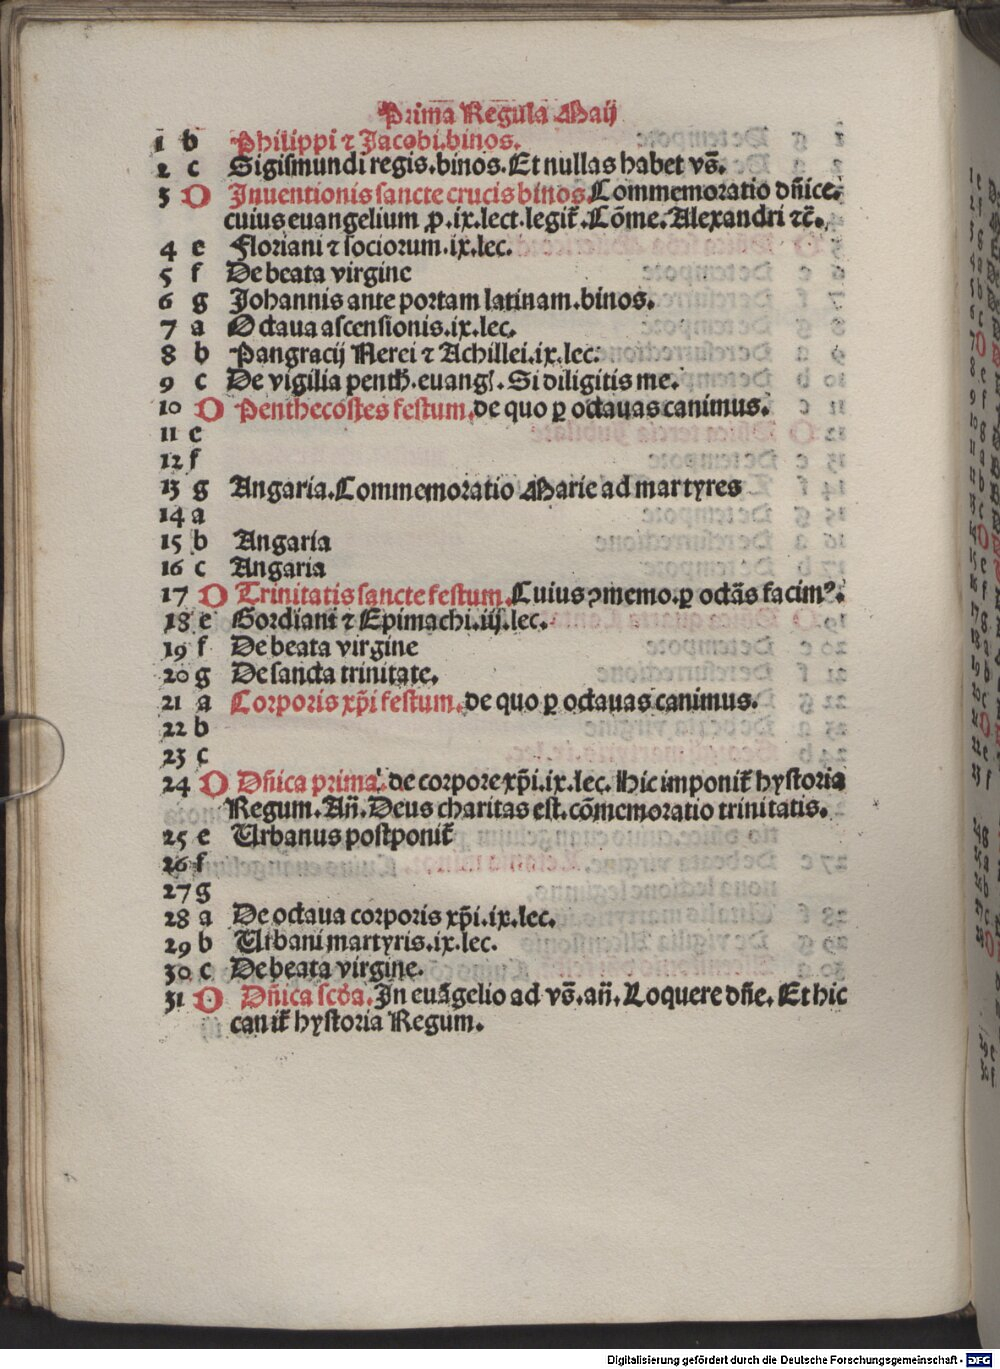 Prima Regula Maij
1 b Philippi ⁊ Jacobi.binos.
2 c Sigismundi regis.binos.Et nullas habet vs̄.
3 D Inuentionis sancte crucis binos.Commemoratio dn̄ice.
cuius euangelium ꝑ.ix.lect.legit᷑.Cōme.Alexandri ⁊c̄.
4 e Floriani ⁊ sociorum.ix.lec.
5 f De beata virgine
6 g Johannis ante portam latinam.binos.
7 a Octaua ascensionis.ix.lec.
8 b Pangracij Nerei ⁊ Achillei.ix.lec.
9 c De vigilia penth̄.euangl̄.Si diligitis me.
10 D Penthecostes festum.de quo ꝑ octauas canimus.
11 e
12 f
13 g Angaria.Commemoratio Marie ad martyres
14 a
15 b Angaria
16 c Angaria
17 D Trinitatis sancte festum.Cuius ꝯmemo.ꝑ octās facimꝰ.
18 e Gordiani ⁊ Epimachi.iij.lec.
19 f De beata virgine
20 g De sancta trinitate.
21 a Corporis xp̄i festum.de quo ꝑ octauas canimus.
22 b
23 c
24 D Dn̄ica prima. de corpore xp̄i.ix.lec.Hic imponit᷑ hystoria
Regum.An̄.Deus charitas est.cōmemoratio trinitatis.
25 e Urbanus postponit᷑
26 f
27 g
28 a De octaua corporis xp̄i.ix.lec.
29 b Urbani martyris.ix.lec.
30 c De beata virgine.
31 D Dn̄ica scd̄a.In euāgelio ad vs̄.an̄.Loquere dn̄e.Et hic
canit᷑ hystoria Regum.
Digitalisierung gefördert durch die Deutsche Forschungsgemeinschaft - DFG